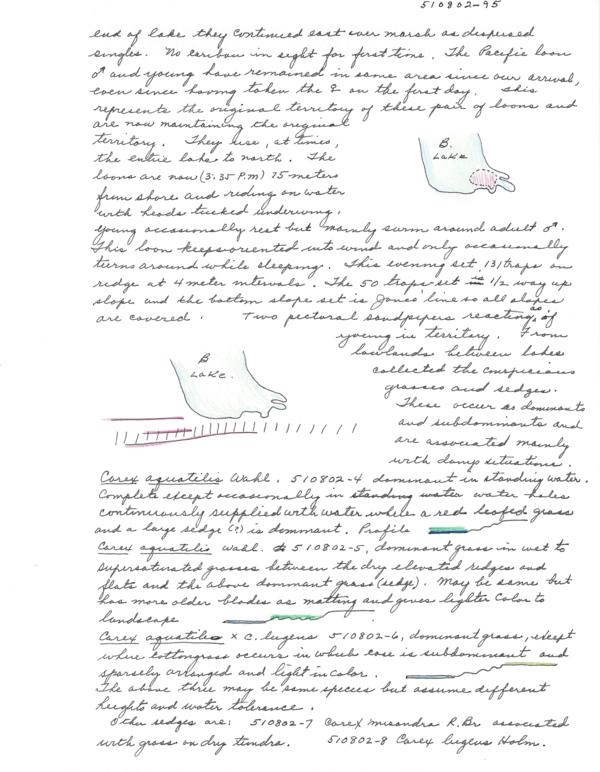 510802-95
end of lake they continued east over marsh as dispersed
singles. No caribou in sight for first time. The Pacific loon
♂ and young have remained in same area since our arrival,
even since having taken the ♀ on the first day. This
represents the original territory of these pair of loons and
are now maintaining the original
territory. They use, at times,
the entire lake to north. The
loons are now (3:35 P.M) 75 meters
from shore and riding on water
with heads tucked underwing,
B.
LAKE
young occasionally rest but mainly swim around adult ♂.
This loon keeps oriented into wind and only occasionally
turns around while sleeping. This evening set 131 traps on
ridge at 4 meter intervals. The 50 traps set in 1/2 way up
slope and the bottom slope set is Jones' line so all slopes
are covered. Two pectoral sandpipers reacting as if
young in territory. From
lowlands between lakes
collected the conspicious
grasses and sedges.
These occur as dominants
and subdominants and
are associated mainly
with damp situations.
B
LAKE.
Carex aquatilis Wahl. 510802-4 dominant in standing water.
Complete except occasionally in standing water water holes
continuously supplied with water where a red leafed grass
and a large sedge (?) is dominant. Profile
Carex aquatilis Wahl. 510802-5, dominant grass in wet to
supersaturated grasses between the dry elevated ridges and
flats and the above dominant grass (sedge). May be same but
has more older blades as matting and gives lighter color to
landscape
Carex aquatilis x C. lugens 510802-6, dominant grass, except
where cottongrass occurs in which case is subdominant and
sparsely arranged and light in color.
The above three may be same species but assume different
heights and water tolerance.
Other sedges are: 510802-7 Carex misandra R.Br associated
with grass on dry tundra. 510802-8 Carex lugens Holm.